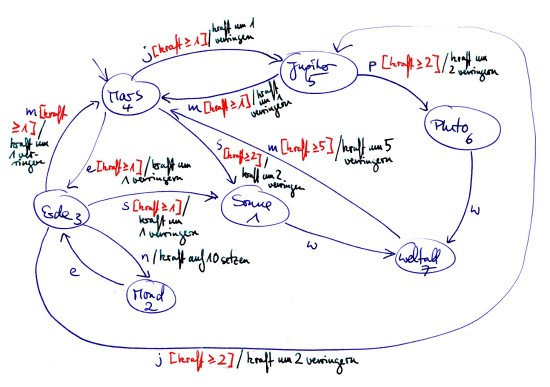 j [kraft ≥ 1] / kraft um 1
verringern
Mars
4
Jupiter
5
m [kraft ≥ 1] / kraft
um 1
verringern
p [kraft ≥ 2] / kraft um
2 verringern
Pluto
6
m [kraft
≥ 1] /
kraft um
1 ver-
ringern
e [kraft ≥ 1] / kraft um
1 verringern
s [kraft ≥ 2] /
kraft um 2
verringern
m [kraft ≥ 5] / kraft um 5
verringern
Erde 3
s [kraft ≥ 1] /
kraft um
1 verringern
Sonne
1
w
w
Weltall
7
n / kraft auf 10 setzen
e
Mond
2
j [kraft ≥ 2] / kraft um 2 verringern